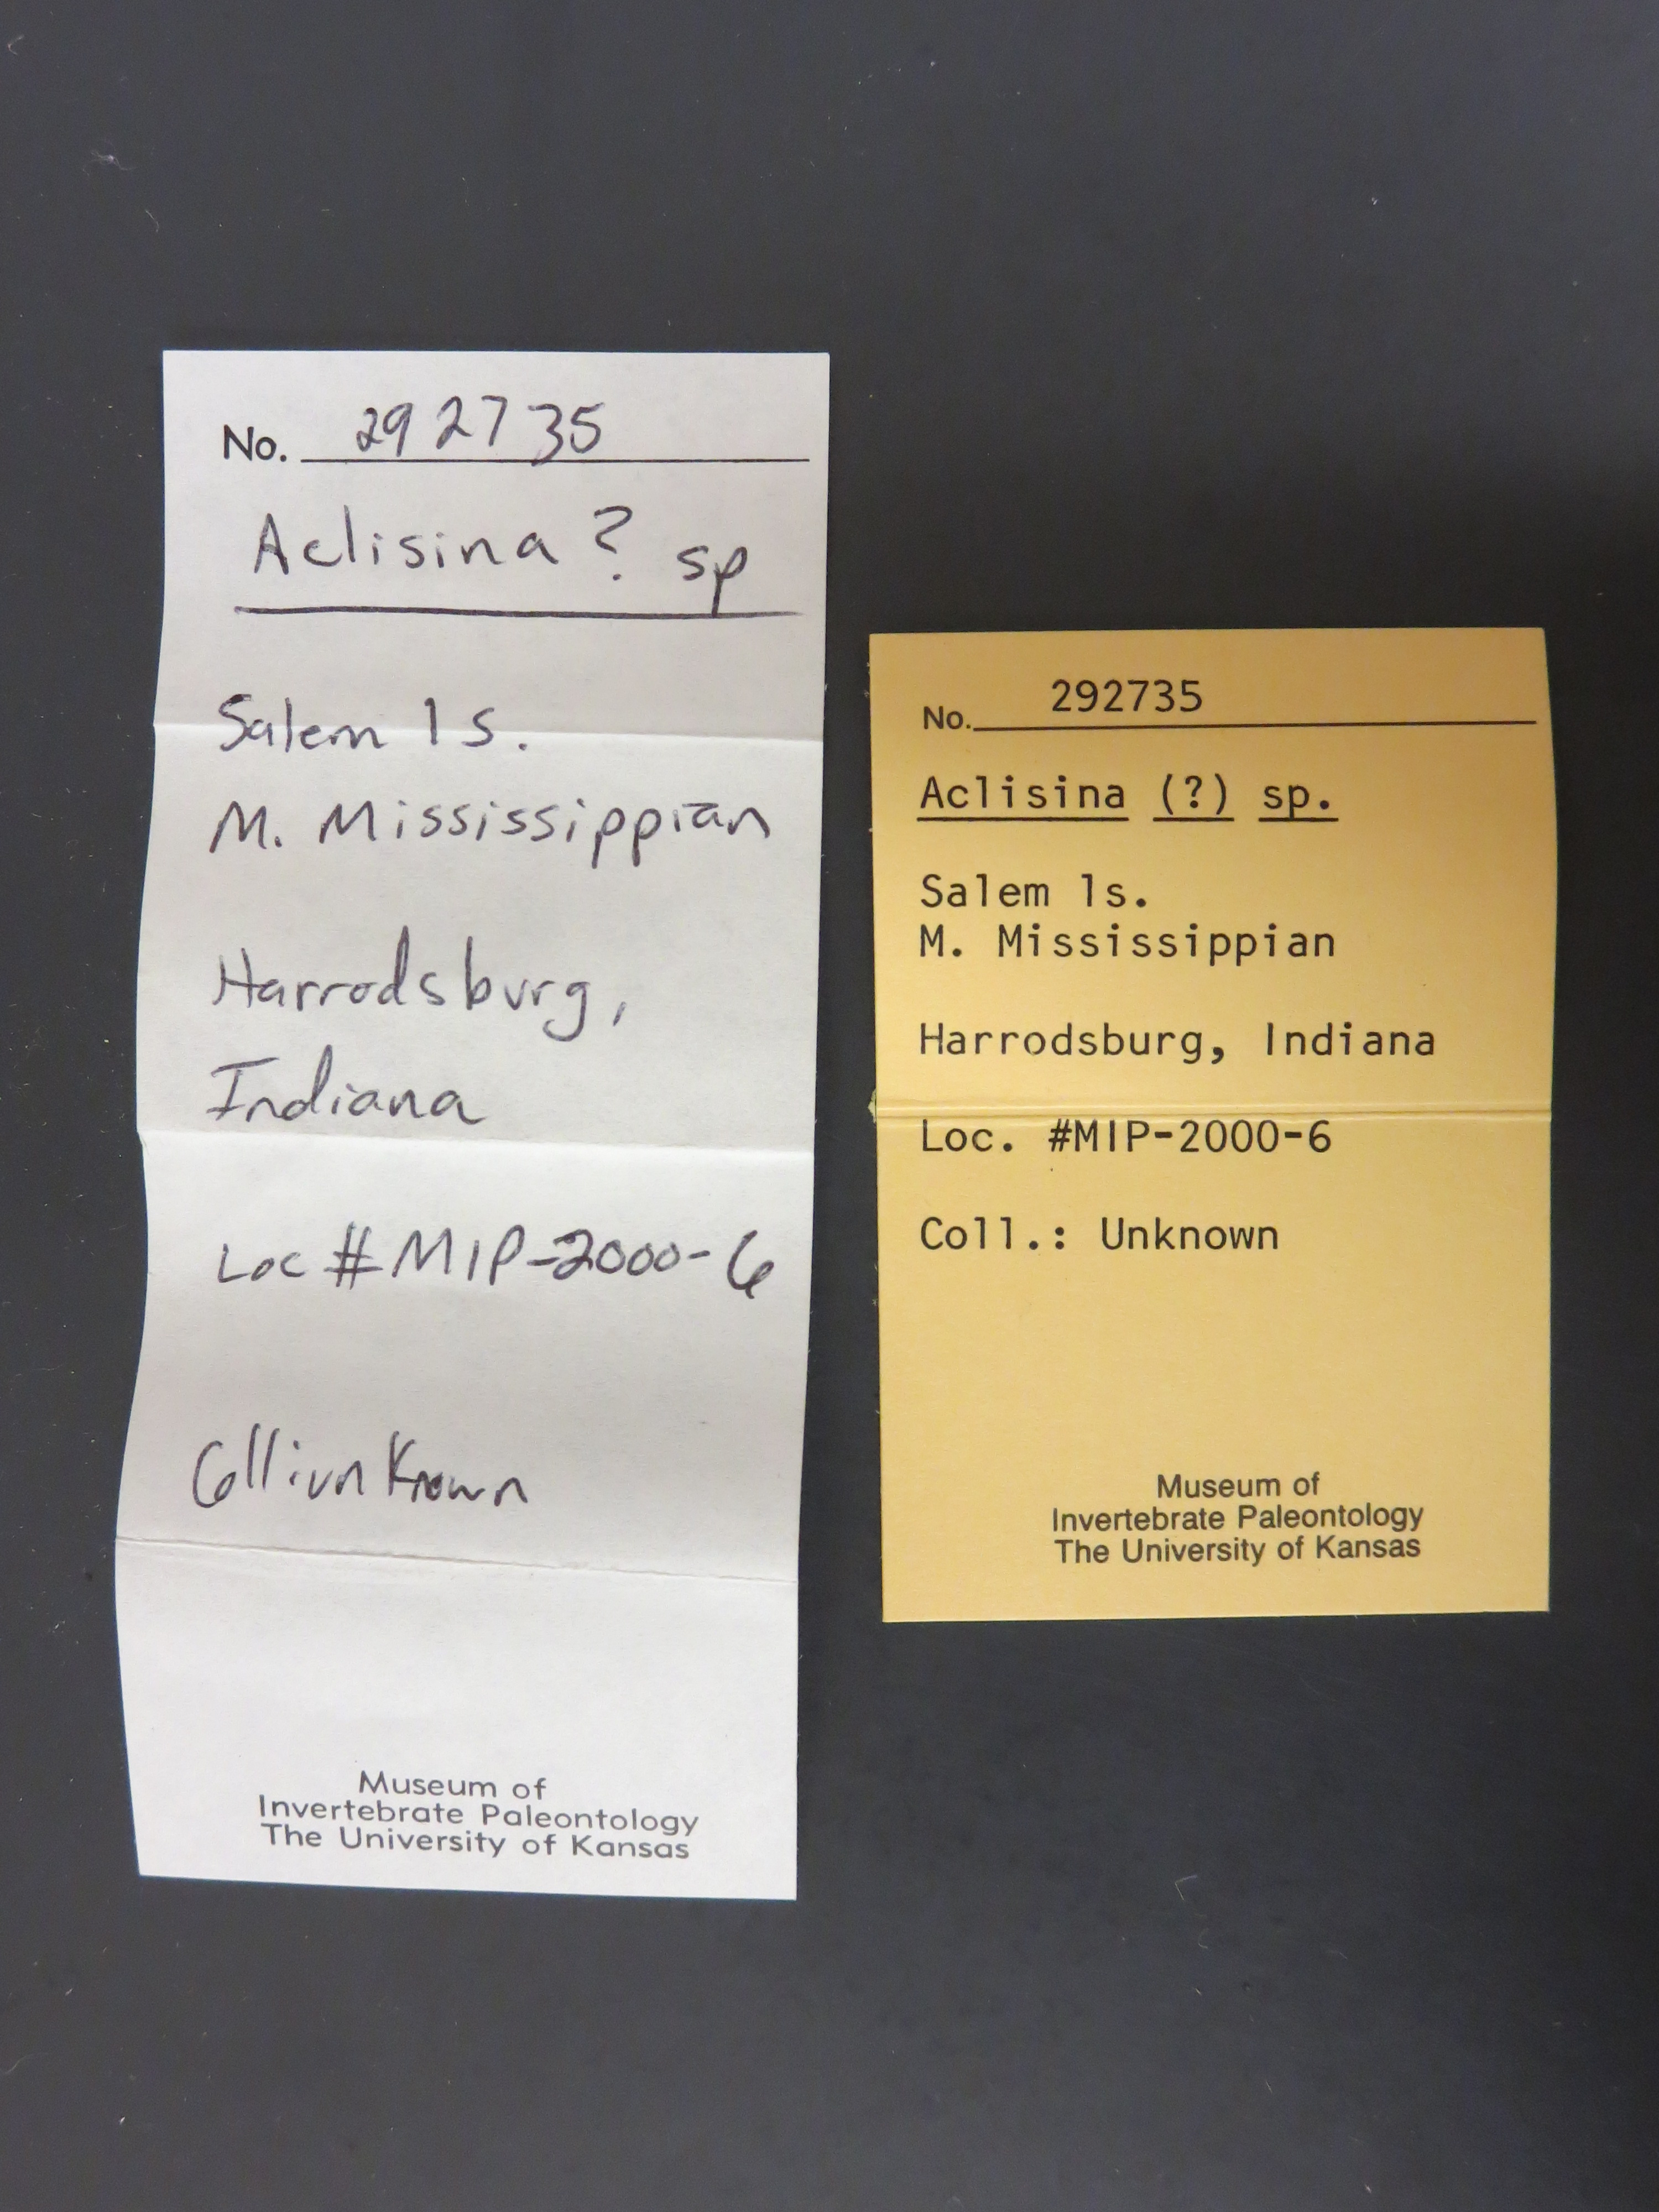 No. 292735
Aclisina ? sp
Salem ls.
M. Mississippian
Harrodsburg,
Indiana
Loc # MIP-2000-6
Coll: unknown
Museum of
Invertebrate Paleontology
The University of Kansas
No. 292735
Aclisina (?) sp.
Salem ls.
M. Mississippian
Harrodsburg, Indiana
Loc. #MIP-2000-6
Coll.: Unknown
Museum of
Invertebrate Paleontology
The University of Kansas